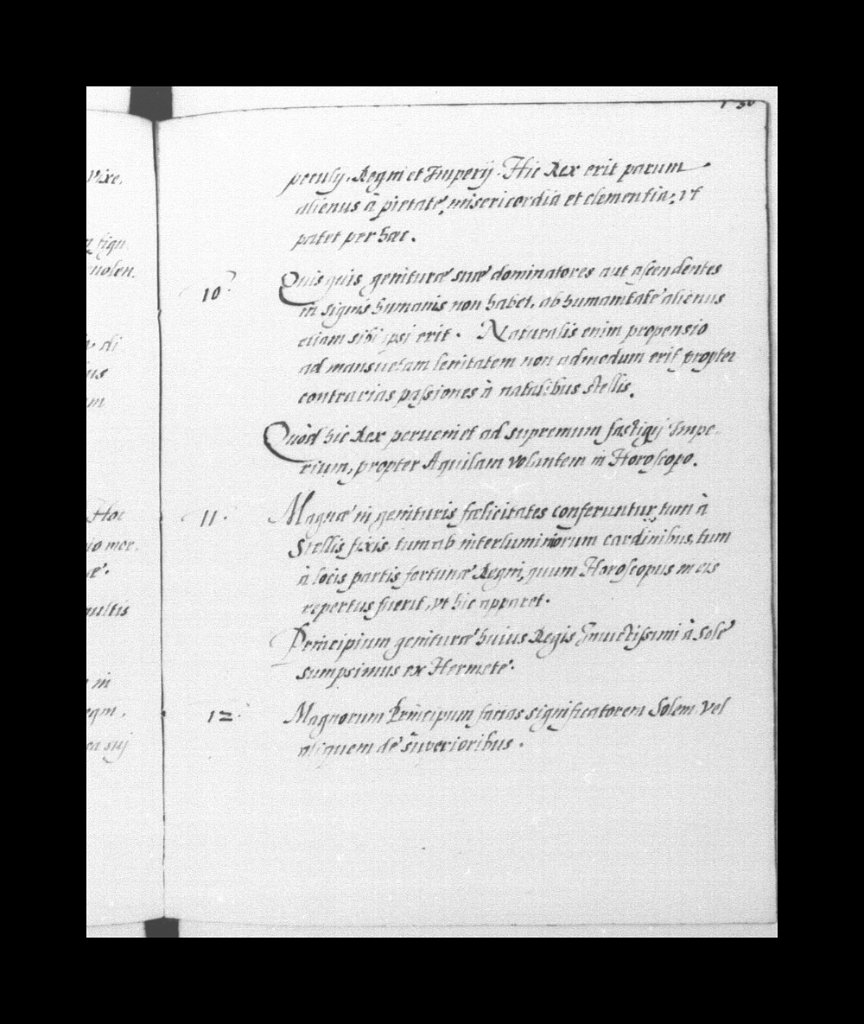 peculij, Regni et Imperij. Hic Rex erit parum
alienus à pietate, misericordia et clementia, vt
patet per hæc.
10. Quisquis genituræ suæ dominatores aut ascendentes
in signis humanis non habet, ab humanitate alienus
etiam sibi ipsi erit. Naturalis enim propensio
ad mansuetam lenitatem non admodum erit propter
contrarias passiones à natalibus stellis.
Quòd hic Rex perueniet ad supremum fastigij Impe-
rium, propter Aquilam volantem in Horoscopo.
11. Magnæ in genituris fœlicitates conferuntur, tum à
Stellis fixis, tum ab interluminiorum cardinibus, tum
à locis partis fortunæ Regni, quum Horoscopus in eis
repertus fuerit, vt hic apparet.
Principium genituræ huius Regis Inuictissimi à Sole
sumpsimus ex Hermete.
12. Magnorum Principum facias significatorem Solem, vel
aliquem de superioribus.